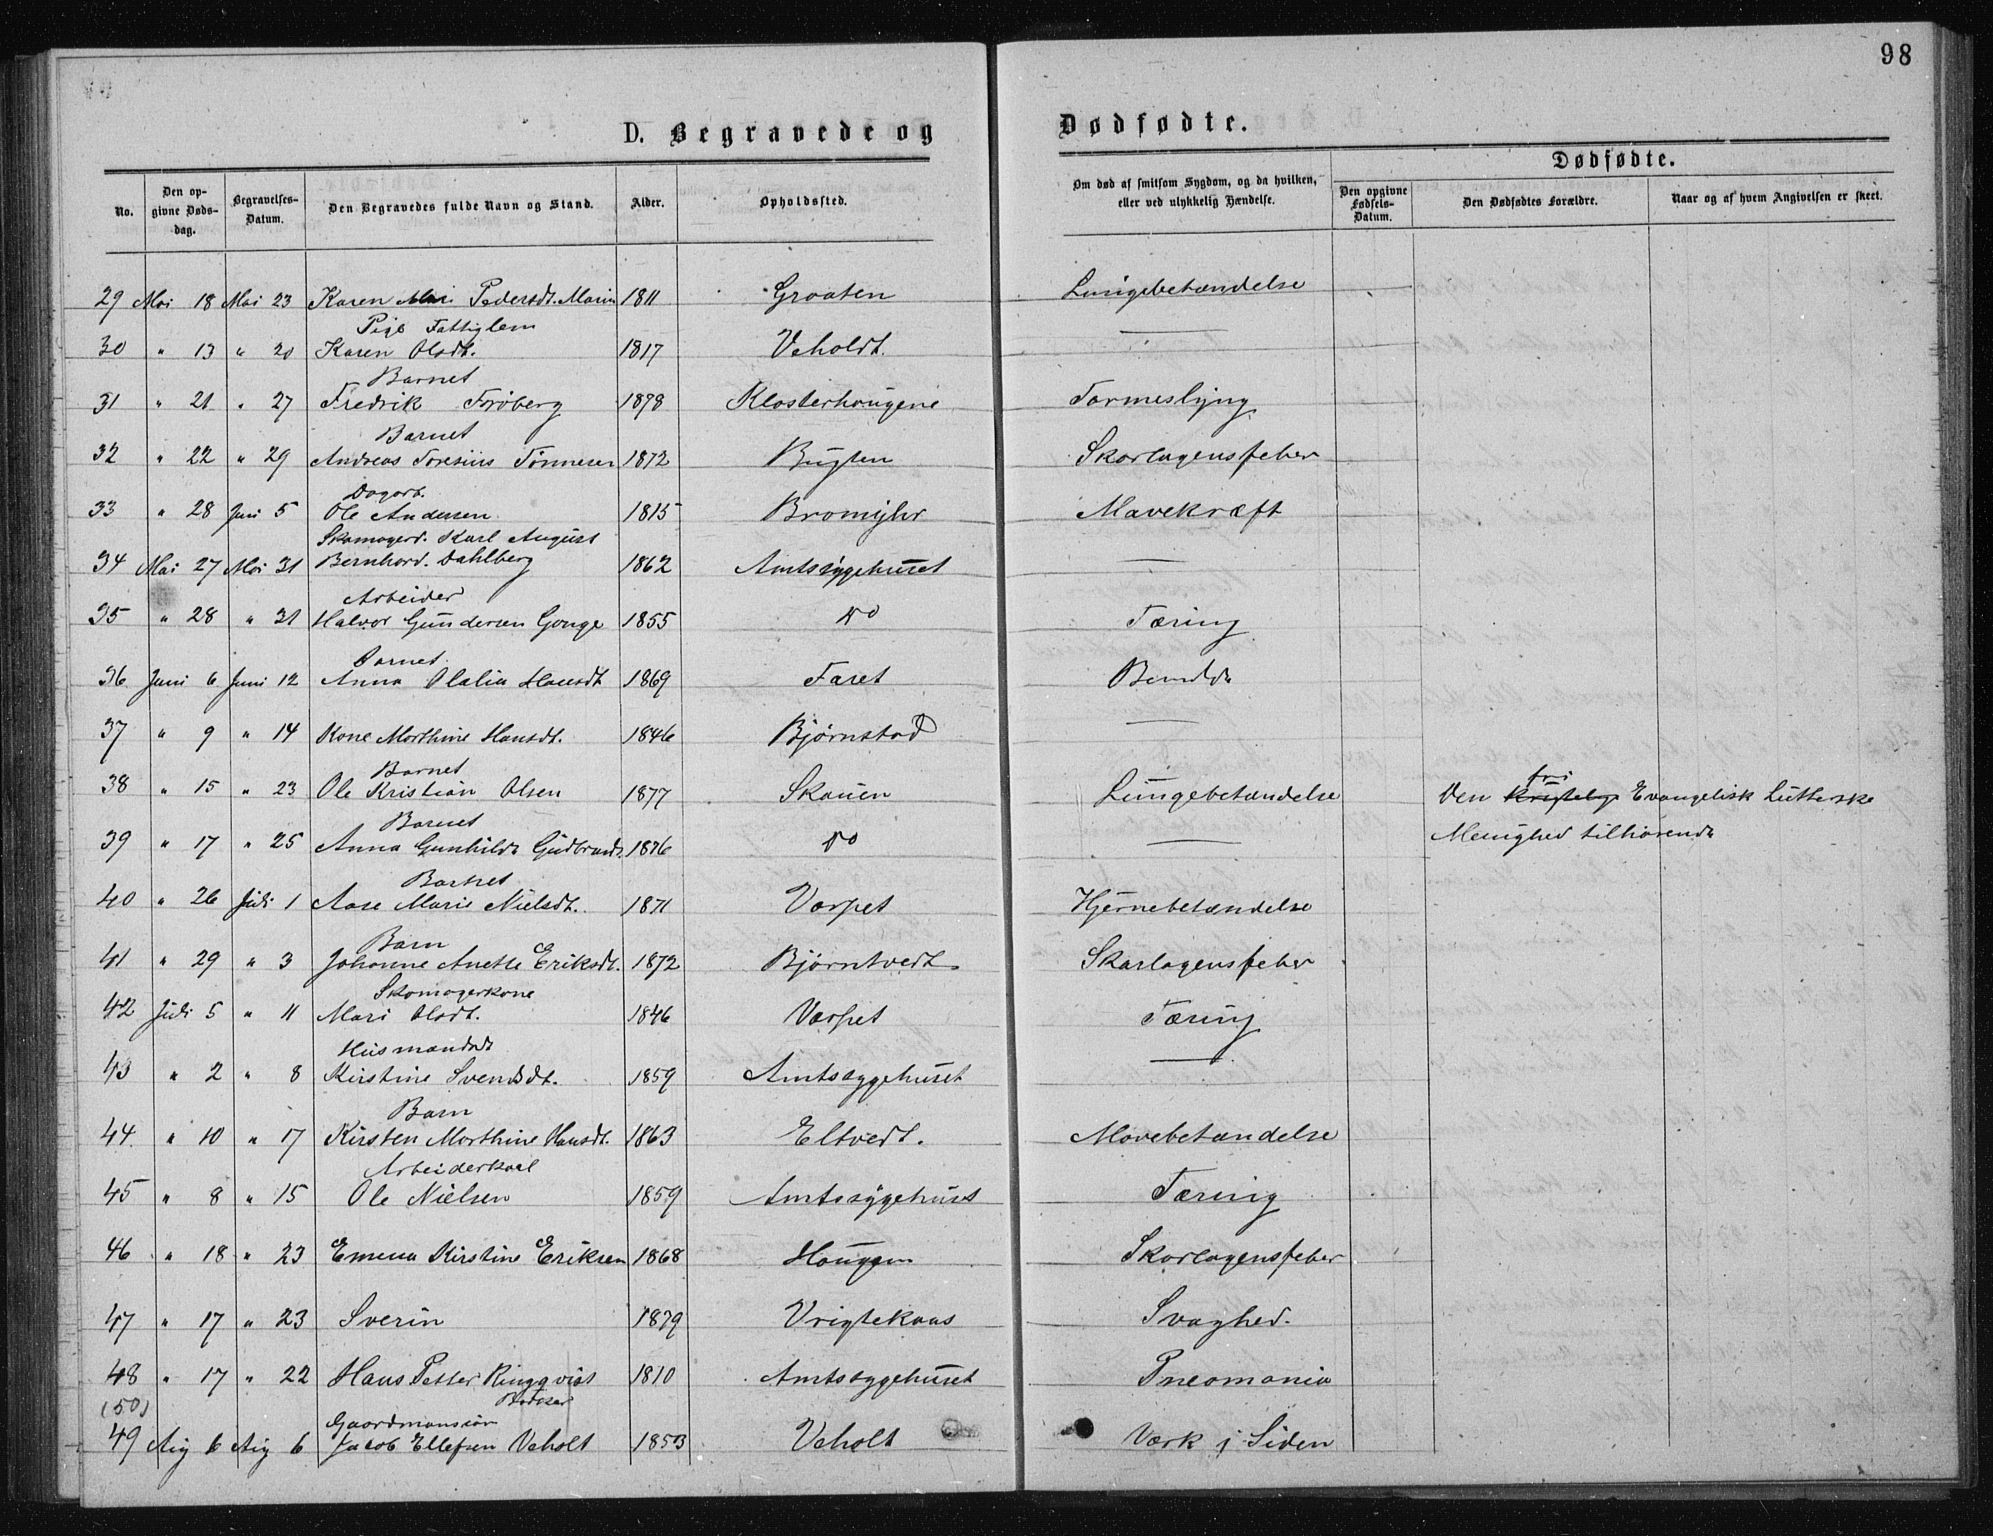 98
D. Begravede og Dødfødte.
Dødfødte.
No.
Den op-
givne Døds-
dag.
Begravelses-
Datum.
Den Begravedes fulde Navn og Stand.
Alder.
Opholdssted.
Om død af smitsom Sygdom, og da hvilken,
eller ved ulykkelig Hændelse.
Den opgivne
Fødsels-
Datum.
Den Dødfødtes Forældre.
Naar og af hvem Angivelsen er skeet.
29 Mai 18 Mai 23 Karen Mari Pedersdt. 1811 Graaten Lungebetændelse
Pige Fattiglem
30 " 13 " 20 Karen Olsdt. 1817 Veholdt —
Barnet
31 " 21 " 27 Fredrik Frøberg 1878 Klosterhougene Tarmeslyng
Barnet
32 " 22 " 29 Andreas Tønnesen 1872 Bugten Skarlagensfeber
Dagarb.
33 " 28 Juni 5 Ole Andersen 1815 Mavekræft
Skomagerd. Karl August
34 Mai 27 Mai 31 Bernhard Dahlberg 1862 Amtssygehuset —
Arbeider
35 " 28 " 31 Halvor Gundersen 1855 do Tæring
Barnet
36 Juni 6 Juni 12 Anna Olalia Hansdt 1869 Faret
37 " 9 " 14 Kone Marthine Hansdt. 1846 Bjørnstad —
Barnet
38 " 15 " 23 Ole Kristian Olsen 1877 Skauen Lungebetændelse Den fri Evangelisk Lutterske
Barnet
39 " 17 " 25 Anna Gunhilde Gudbrands. 1876 do — Menighed tilhørende
Barnet
40 " 26 Juli 1 Aase Marie Nielsdt. 1871 Varpet Hjernebetændelse
Barn
41 " 29 " 3 Johanne Anette Eriksdt. 1872 Bjørntvedt Skarlagensfeber
Skomagerkone
42 Juli 5 " 11 Mari Olsdt. 1846 Varpet Tæring
Husmandsdt
43 " 2 " 8 Kirstine Svendsdt. 1859 Amtssygehuset —
Barn
44. " 10 " 17 Kirsten Marthine Hansdt. 1863 Eltvedt. Mavebetændelse
Arbeiderkarl
45 " 8 " 15 Ole Nielsen 1859 Amtssygehuset Tæring
46 " 18 " 23 Emma Kirstine Eriksen 1868 Haugen Skarlagensfeber
47 " 17 " 23 Sverin 1879 Vrigtekaas Svaghed.
48 " 17 " 22 Hans Petter Ringqvist 1810 Amtssygehuset Pneomonia
(50)
Gaardmandssøn
49 Aug 6 Aug 6 Jacob Ellefsen Veholt 1853 Veholt Værk i Siden